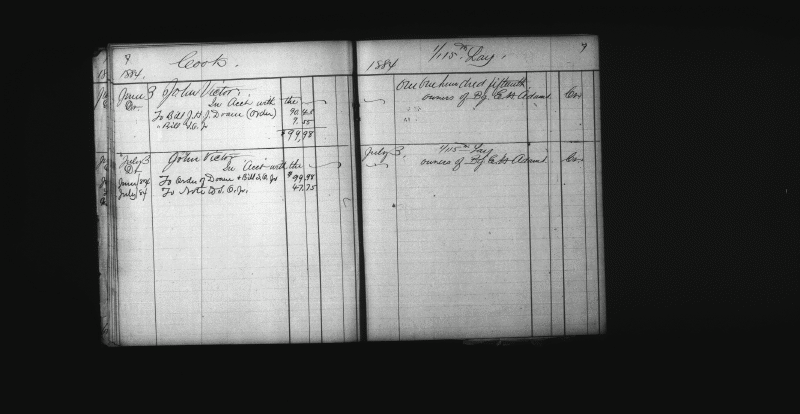 9
Cook.
1884.
June 3 John Victor.
Dr. In Acct with the
To Bill J. H. J. Doane (order) 90.43
" Bill J. O. Jr 7.55
$99,98
July 3 John Victor
Dr. In Acct with the
June 84 To order of Doane + Bill J. O. Jr $99.98
July 84 To Note J. O. Jr. 47.75
9
1884 1/115th Lay.
One One hundred fifteenth
owners of Bg E. H. Adams Cr.
July 3, 1/115th Lay
owners of Bg E. H. Adams Cr.